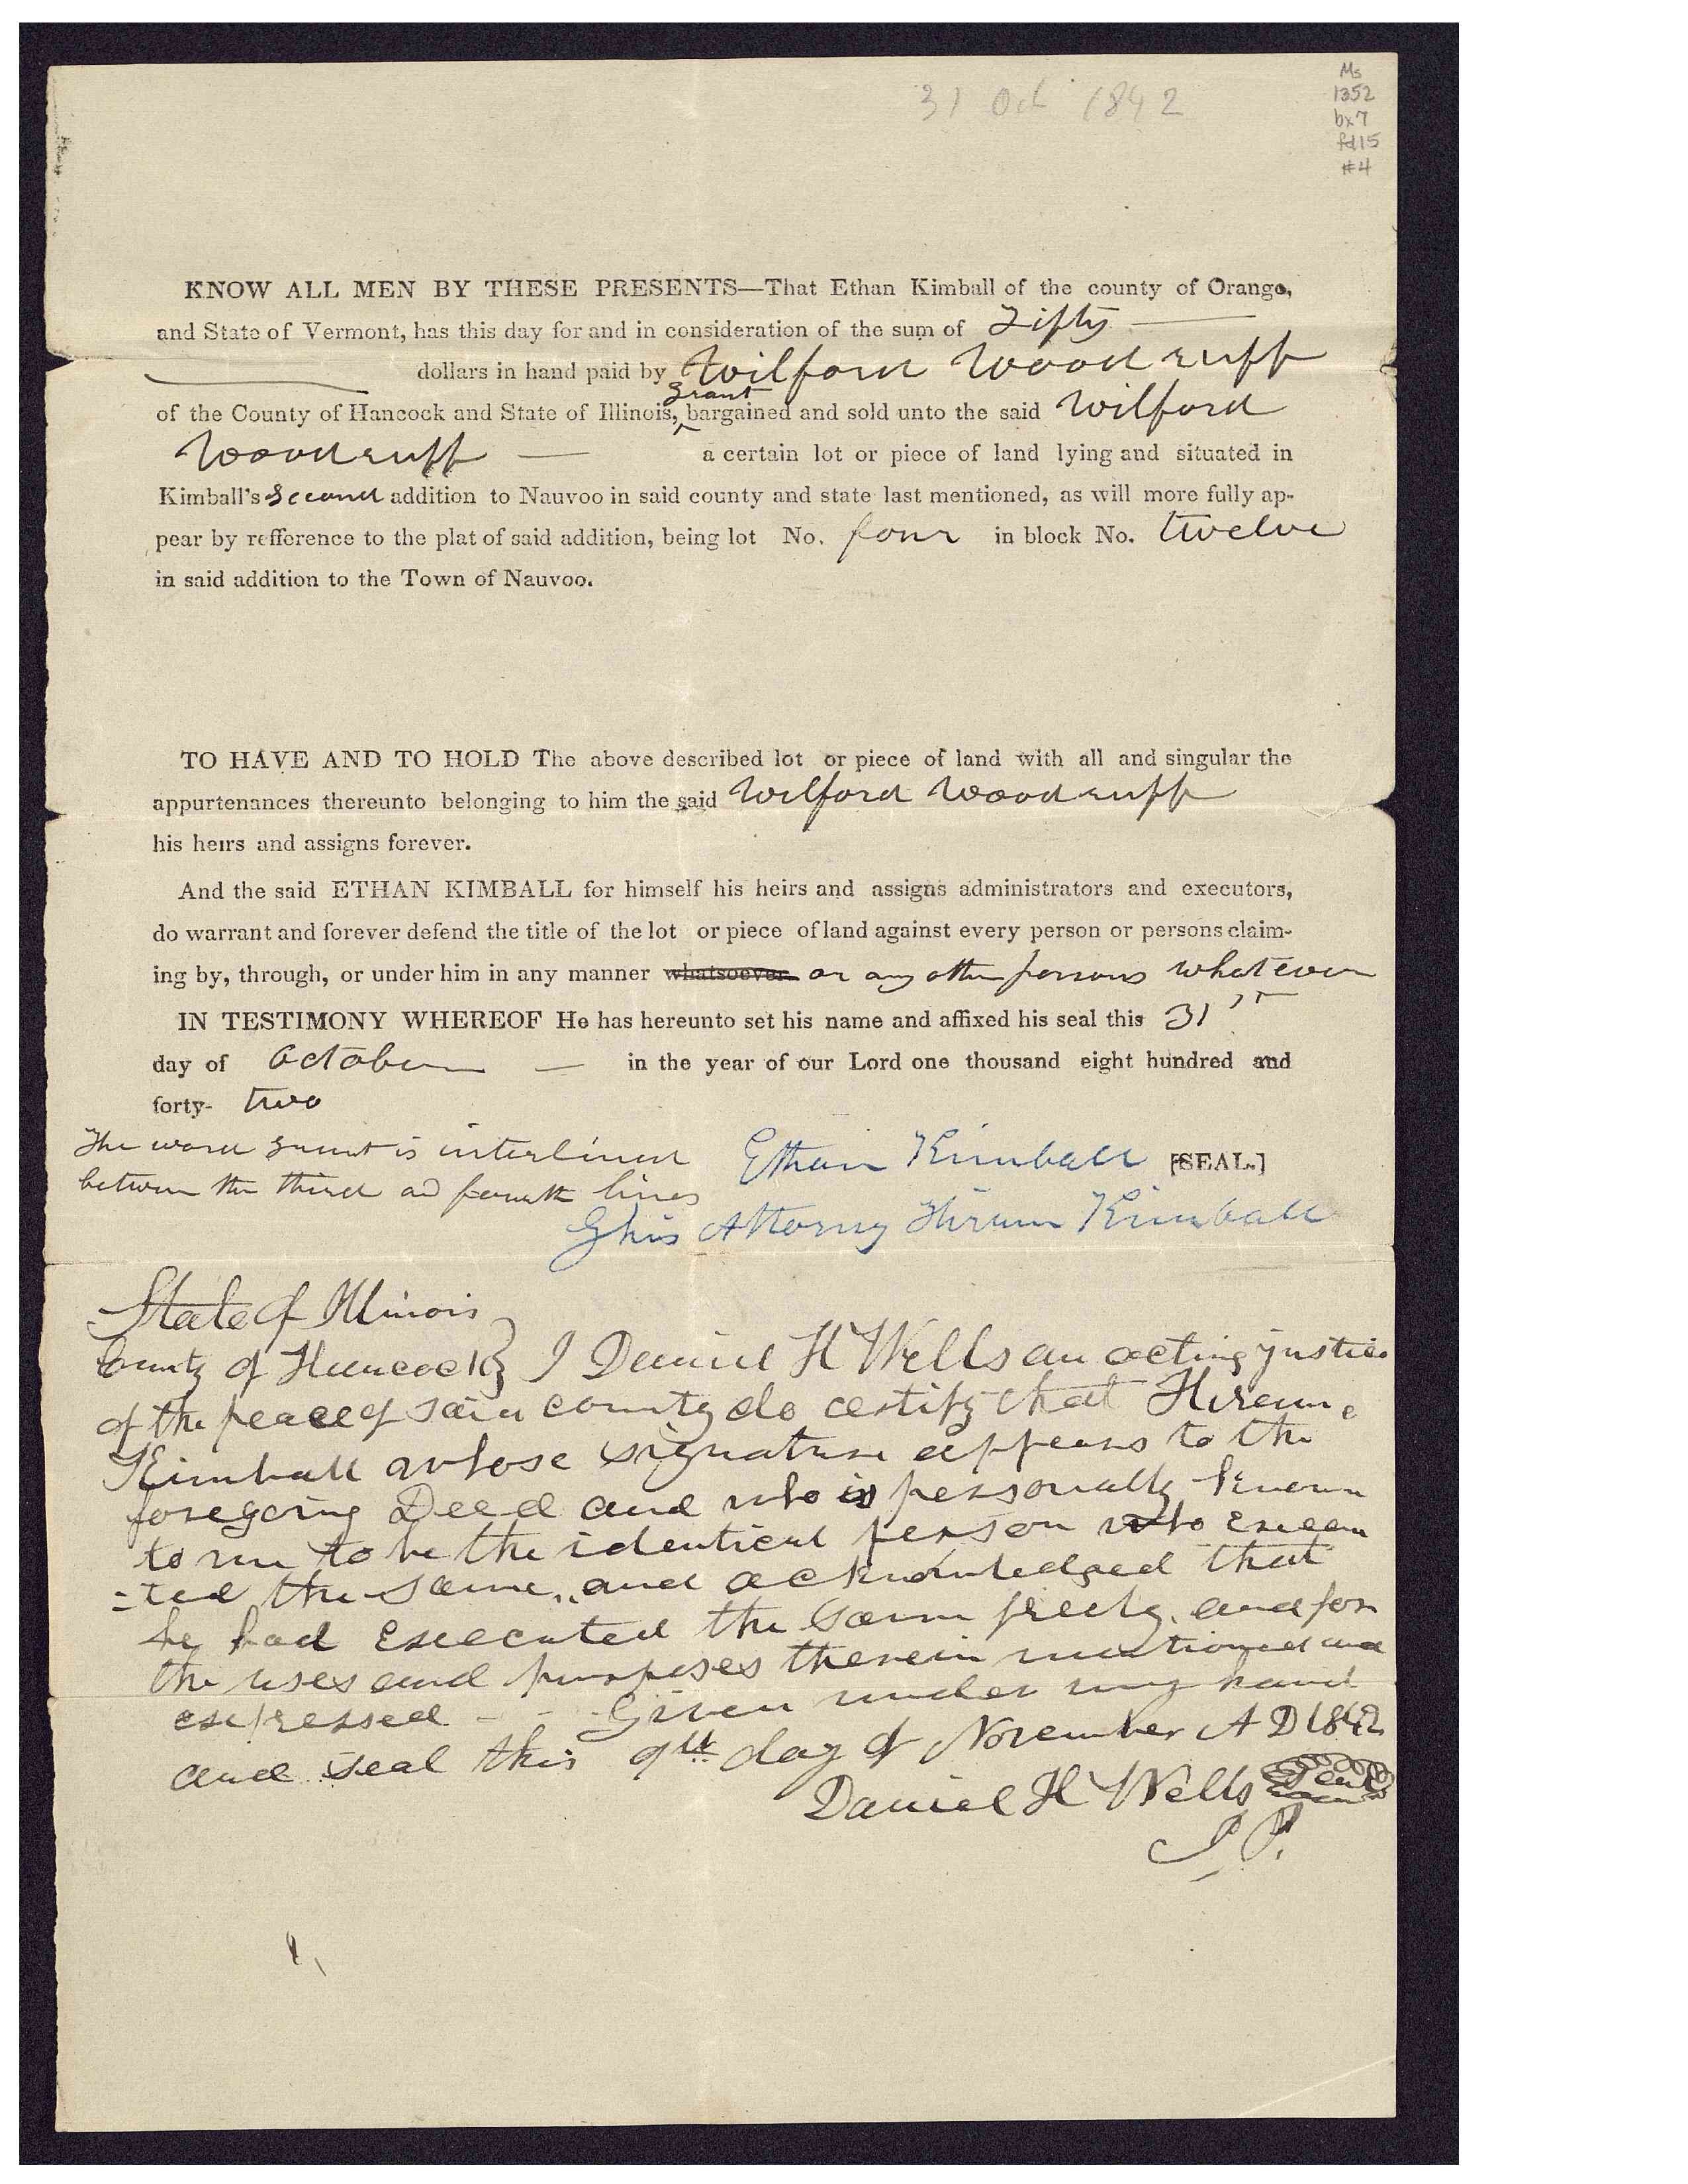 31 Oct 1842
Ms
1352
bx7
fd15
#4
KNOW ALL MEN BY THESE PRESENTS—That Ethan Kimball of the county of Orange,
and State of Vermont, has this day for and in consideration of the sum of Fifty
dollars in hand paid by Wilford Woodruff
grant
of the County of Hancock and State of Illinois, ^ bargained and sold unto the said Wilford
Woodruff — a certain lot or piece of land lying and situated in
Kimball's Second addition to Nauvoo in said county and state last mentioned, as will more fully ap-
pear by refference to the plat of said addition, being lot No. four in block No. twelve
in said addition to the Town of Nauvoo.
TO HAVE AND TO HOLD The above described lot or piece of land with all and singular the
appurtenances thereunto belonging to him the said Wilford Woodruff
his heirs and assigns forever.
And the said ETHAN KIMBALL for himself his heirs and assigns administrators and executors,
do warrant and forever defend the title of the lot or piece of land against every person or persons claim-
ing by, through, or under him in any manner whatsoever or any other persons whatever
IN TESTIMONY WHEREOF He has hereunto set his name and affixed his seal this 31st
day of October — in the year of our Lord one thousand eight hundred and
forty- two
The word grant is interlined
between the third and fourth lines
Ethan Kimball [SEAL.]
By his Attorny Hiram Kimball
State of Illinois
County of Hancock } I Daniel H Wells an acting justice
of the peace of said county do certify that Hiram
Kimball whose signature appears to the
foregoing Deed and who is personally known
to me to be the identical person who execu
=ted the same, and acknowledged that
he had Executed the same freely, and for
the uses and purposes therein mentioned and
expressed - - - Given under my hand
and seal this 9th day of November A D 1842
Daniel H Wells Seal
J. P.